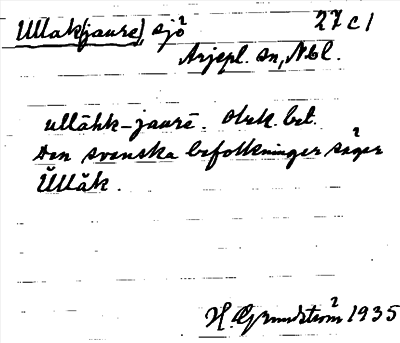 Ullak(jaure), sjö 27 c 1
Arjepl. sn, Nbl.
ullahk-jaurē. Obek. bet.
Den svenska befolkningen säger
Ŭllăk.
H. Grundström 1935